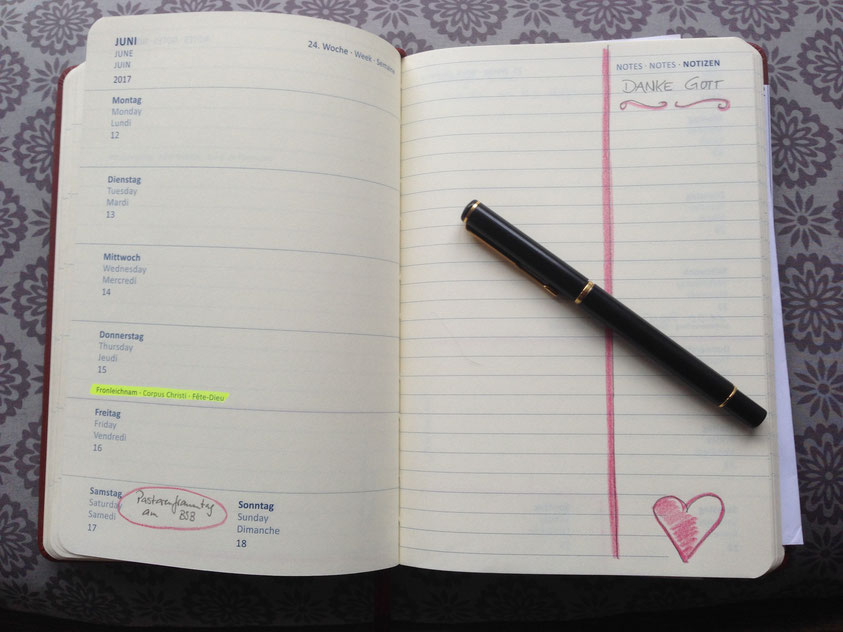 JUNI
JUNE
JUIN
2017
24. Woche · Week · Semaine
Montag
Monday
Lundi
12
Dienstag
Tuesday
Mardi
13
Mittwoch
Wednesday
Mercredi
14
Donnerstag
Thursday
Jeudi
15
Fronleichnam · Corpus Christi · Fête-Dieu
Freitag
Friday
Vendredi
16
Samstag
Saturday
Samedi
17
Pastorenfrauentag
am BSB
Sonntag
Sunday
Dimanche
18
NOTES · NOTES · NOTIZEN
DANKE GOTT